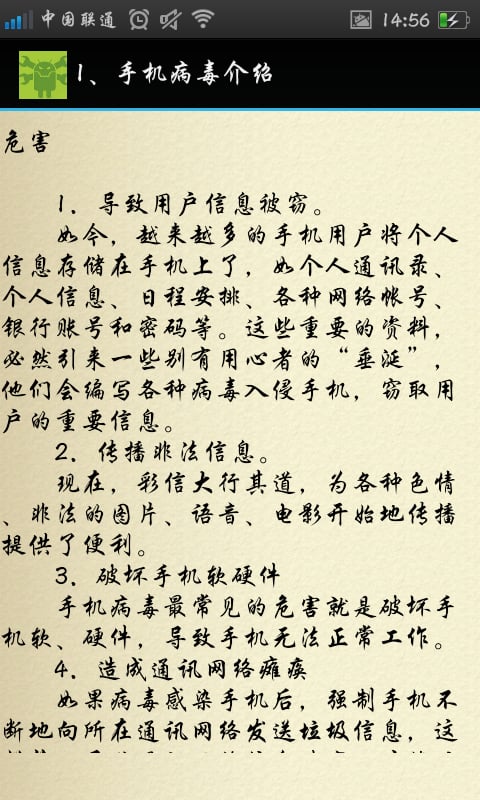 中国联通
14:56
1、手机病毒介绍
危害
1. 导致用户信息被窃。
如今，越来越多的手机用户将个人
信息存储在手机上了，如个人通讯录、
个人信息、日程安排、各种网络帐号、
银行账号和密码等。这些重要的资料，
必然引来一些别有用心者的“垂涎”，
他们会编写各种病毒入侵手机，窃取用
户的重要信息。
2. 传播非法信息。
现在，彩信大行其道，为各种色情
、非法的图片、语音、电影开始地传播
提供了便利。
3. 破坏手机软硬件
手机病毒最常见的危害就是破坏手
机软、硬件，导致手机无法正常工作。
4. 造成通讯网络瘫痪
如果病毒感染手机后，强制手机不
断地向所在通讯网络发送垃圾信息，这